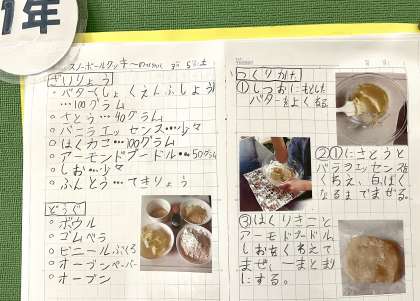 1年
スノーボールクッキー
ざいりょう
・バター(しょくえんふしよう)
…100グラム
・さとう…40グラム
・バニラエッセンス…少々
・はくりきこ…100グラム
・アーモンドプードル…50グラム
・しお…少々
・ふんとう…てきりょう
どうぐ
・ボウル
・ゴムベラ
・ビニールぶくろ
・オーブンペーパー
・オーブン
つくりかた
①しつおんにもどした
バターをよくねる。
②①にさとうと
バニラエッセンスを
くわえ、白っぽく
なるまでまぜる。
③はくりきこと
アーモンドプードル
しおをくわえて
まぜ、一まとまり
にする。